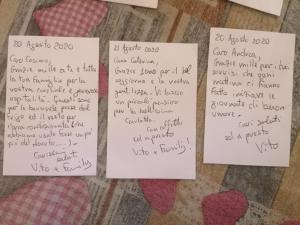 20 Agosto 2020
Caro Cosimo,
Grazie mille a te e tutta
la tua famiglia per la
vostra cordiale e generosa
ospitalità. Questi sono
per le bombole prese dal
frigo ed il resto per
l'aria condizionata che
abbiamo usato forse un po'
più del dovuto....
Carissimi
saluti
Vito e Family
21 Agosto 2020
Cara Caterina,
Grazie per il bel
soggiorno e la vostra
gentilezza. Vi lascio
un piccolo pensiero
per la
Con affetto
ed a presto
Vito e Family!
20 Agosto 2020
Caro Andrea,
Grazie mille per i tuoi
sorrisi che ogni
mattina ci hanno
fatto iniziare le
giornate di buon
umore.
Cari saluti
ed a presto
Vito